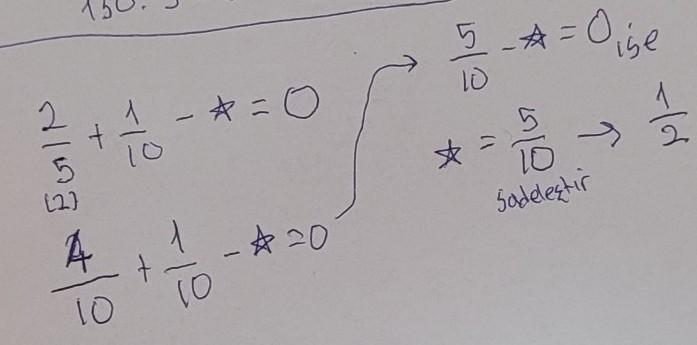 2/5 + 1/10 - ☆ = 0
(2)
4/10 + 1/10 - ☆ = 0
5/10 - ☆ = 0 ise
☆ = 5/10 → 1/2
Sadeleştir